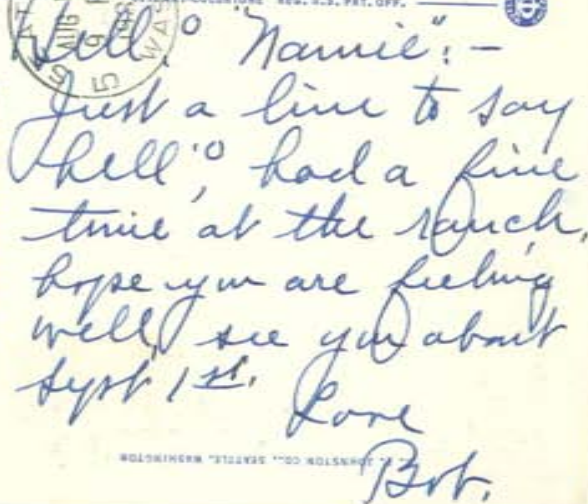 REG. U.S. PAT. OFF.
AUG
9
5
WA
Hell.º "Namie":-
Just a line to say
hell'º, had a fine
time at the ranch,
hope you are feeling
well, see you about
Sept 1st.
Love
Bob.
JOHNSTON CO., SEATTLE, WASHINGTON